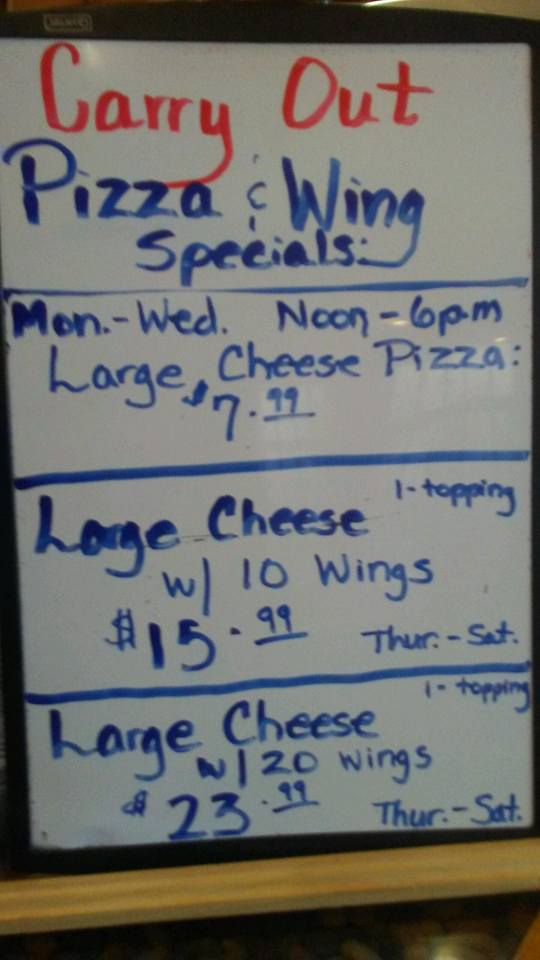 Carry Out
Pizza & Wing
Specials:
Mon.-Wed. Noon-6pm
Large Cheese Pizza:
$7.99
1-topping
Large Cheese
w/ 10 Wings
$15.99
Thur.-Sat.
1-topping
Large Cheese
w/ 20 wings
$23.99
Thur.-Sat.